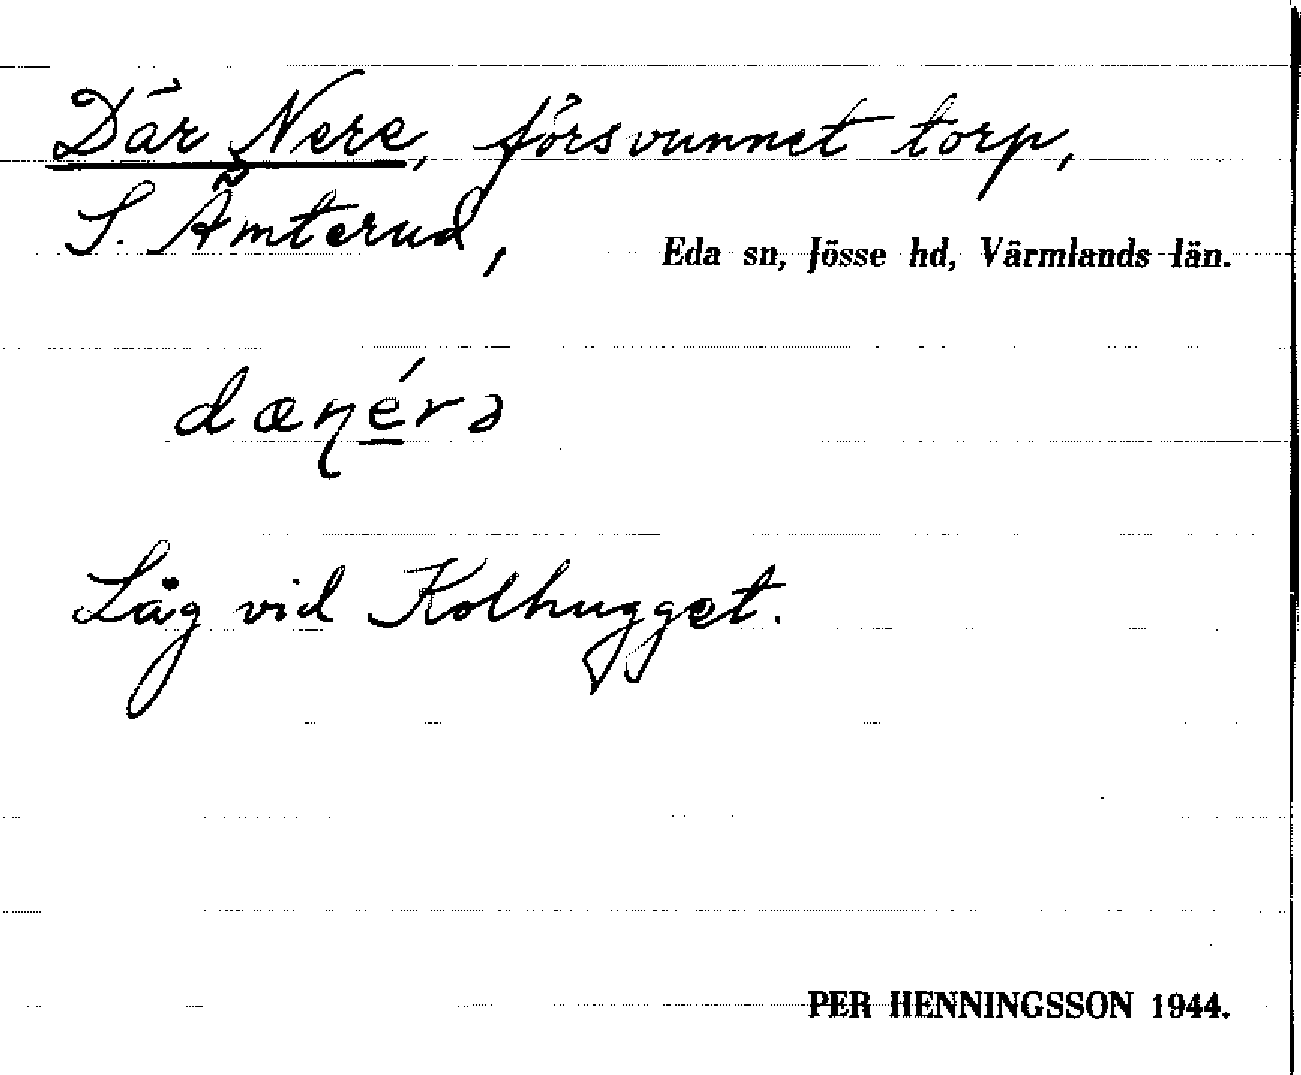 Där Nere, försvunnet torp,
S. Ämterud,
Eda sn, Jösse hd, Värmlands län.
dæɳé̲rə
Låg vid Kolhugget.
PER HENNINGSSON 1944.